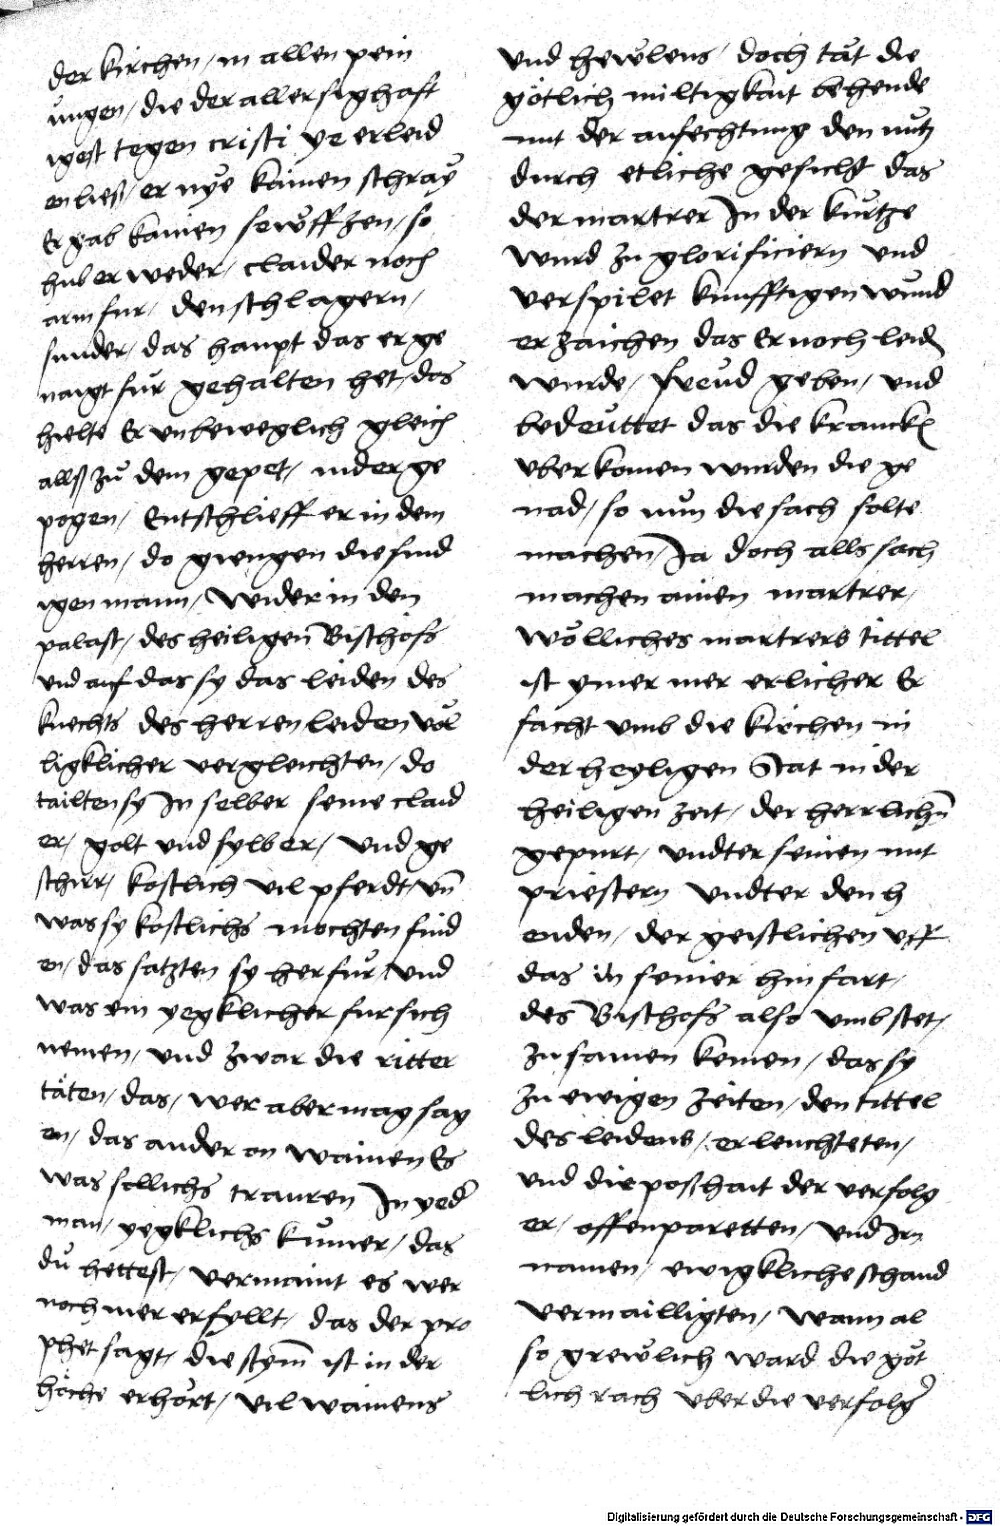 der kirchen / in allen pein
ungen / die der aller sighaft
igest tegen cristi ye erleid
en ließ / er nye kainen schray
Er gab kainen sewffzen / so
hub er weder / claider noch
arm fur / den schlagern /
sunder / das haupt das er ge
naigt fur gehalten het / das
hielte Er unbeweglich gleich
allß zu dem gepet / nider ge
pogen / Entschlieff er in dem
herren / do giengen die sund
igen mann / Wider in den
palast / des heiligen Bischofs
und auf das sy das leiden des
knechts des herren leiden völ
ligklicher vergleichten / do
tailten sy In selber seine claid
er / golt und sylber / Und ge
schirr / kostlich vil pferdt / un̄
was sy kostlichs mochten find
en / das satzten sy her fur / und
was ein yegklicher fur sich
nemen / und zwar die ritter
täten / das / wer aber mag sag
en / das ander on wainen Es
was sollichs trauren In yeder
man / yegklichs kumer / das
du hettest / vermaint es wer
noch mer erfyllt / das der pro
phet sagt / die stym̄ ist in der
höche erhört / vil wainens
und hewlens / doch tät die
götlich miltigkait behende
mit der anfechtung den nutz
durch etliche gesicht das
der martrer In der kurtze
wurd zu glorificiern und
verspilet kunfftigen wund
er zaichen das Er noch leid
wurde / freud geben / und
bedeuttet das die krancken
uberkomen wurden die ge
nad / so nun die sach solte
machen / Ja doch alls sach
machen ainen martrer /
wölliches martrers tittel
ist ymer mer erlicher Er
facht umb die kirchen in
der heyligen Stat in der
heiligen zeit / der herrlichn̄
gepurt / undter seinen mit
priestern undter den h
enden / der geistlichen uff
das in seiner hinfart /
des Bischofs also umbstet /
zusamen kemen / das sy
zu ewigen zeiten / den tittel
des leidens / erleuchteten /
und die poßhait der verfolg
er / offenparetten / und Irn
namen / ewigkliche schand
vermailligten / wann al
so grewlich ward die göt
lich rach uber die verfolger
Digitalisierung gefördert durch die Deutsche Forschungsgemeinschaft - DFG